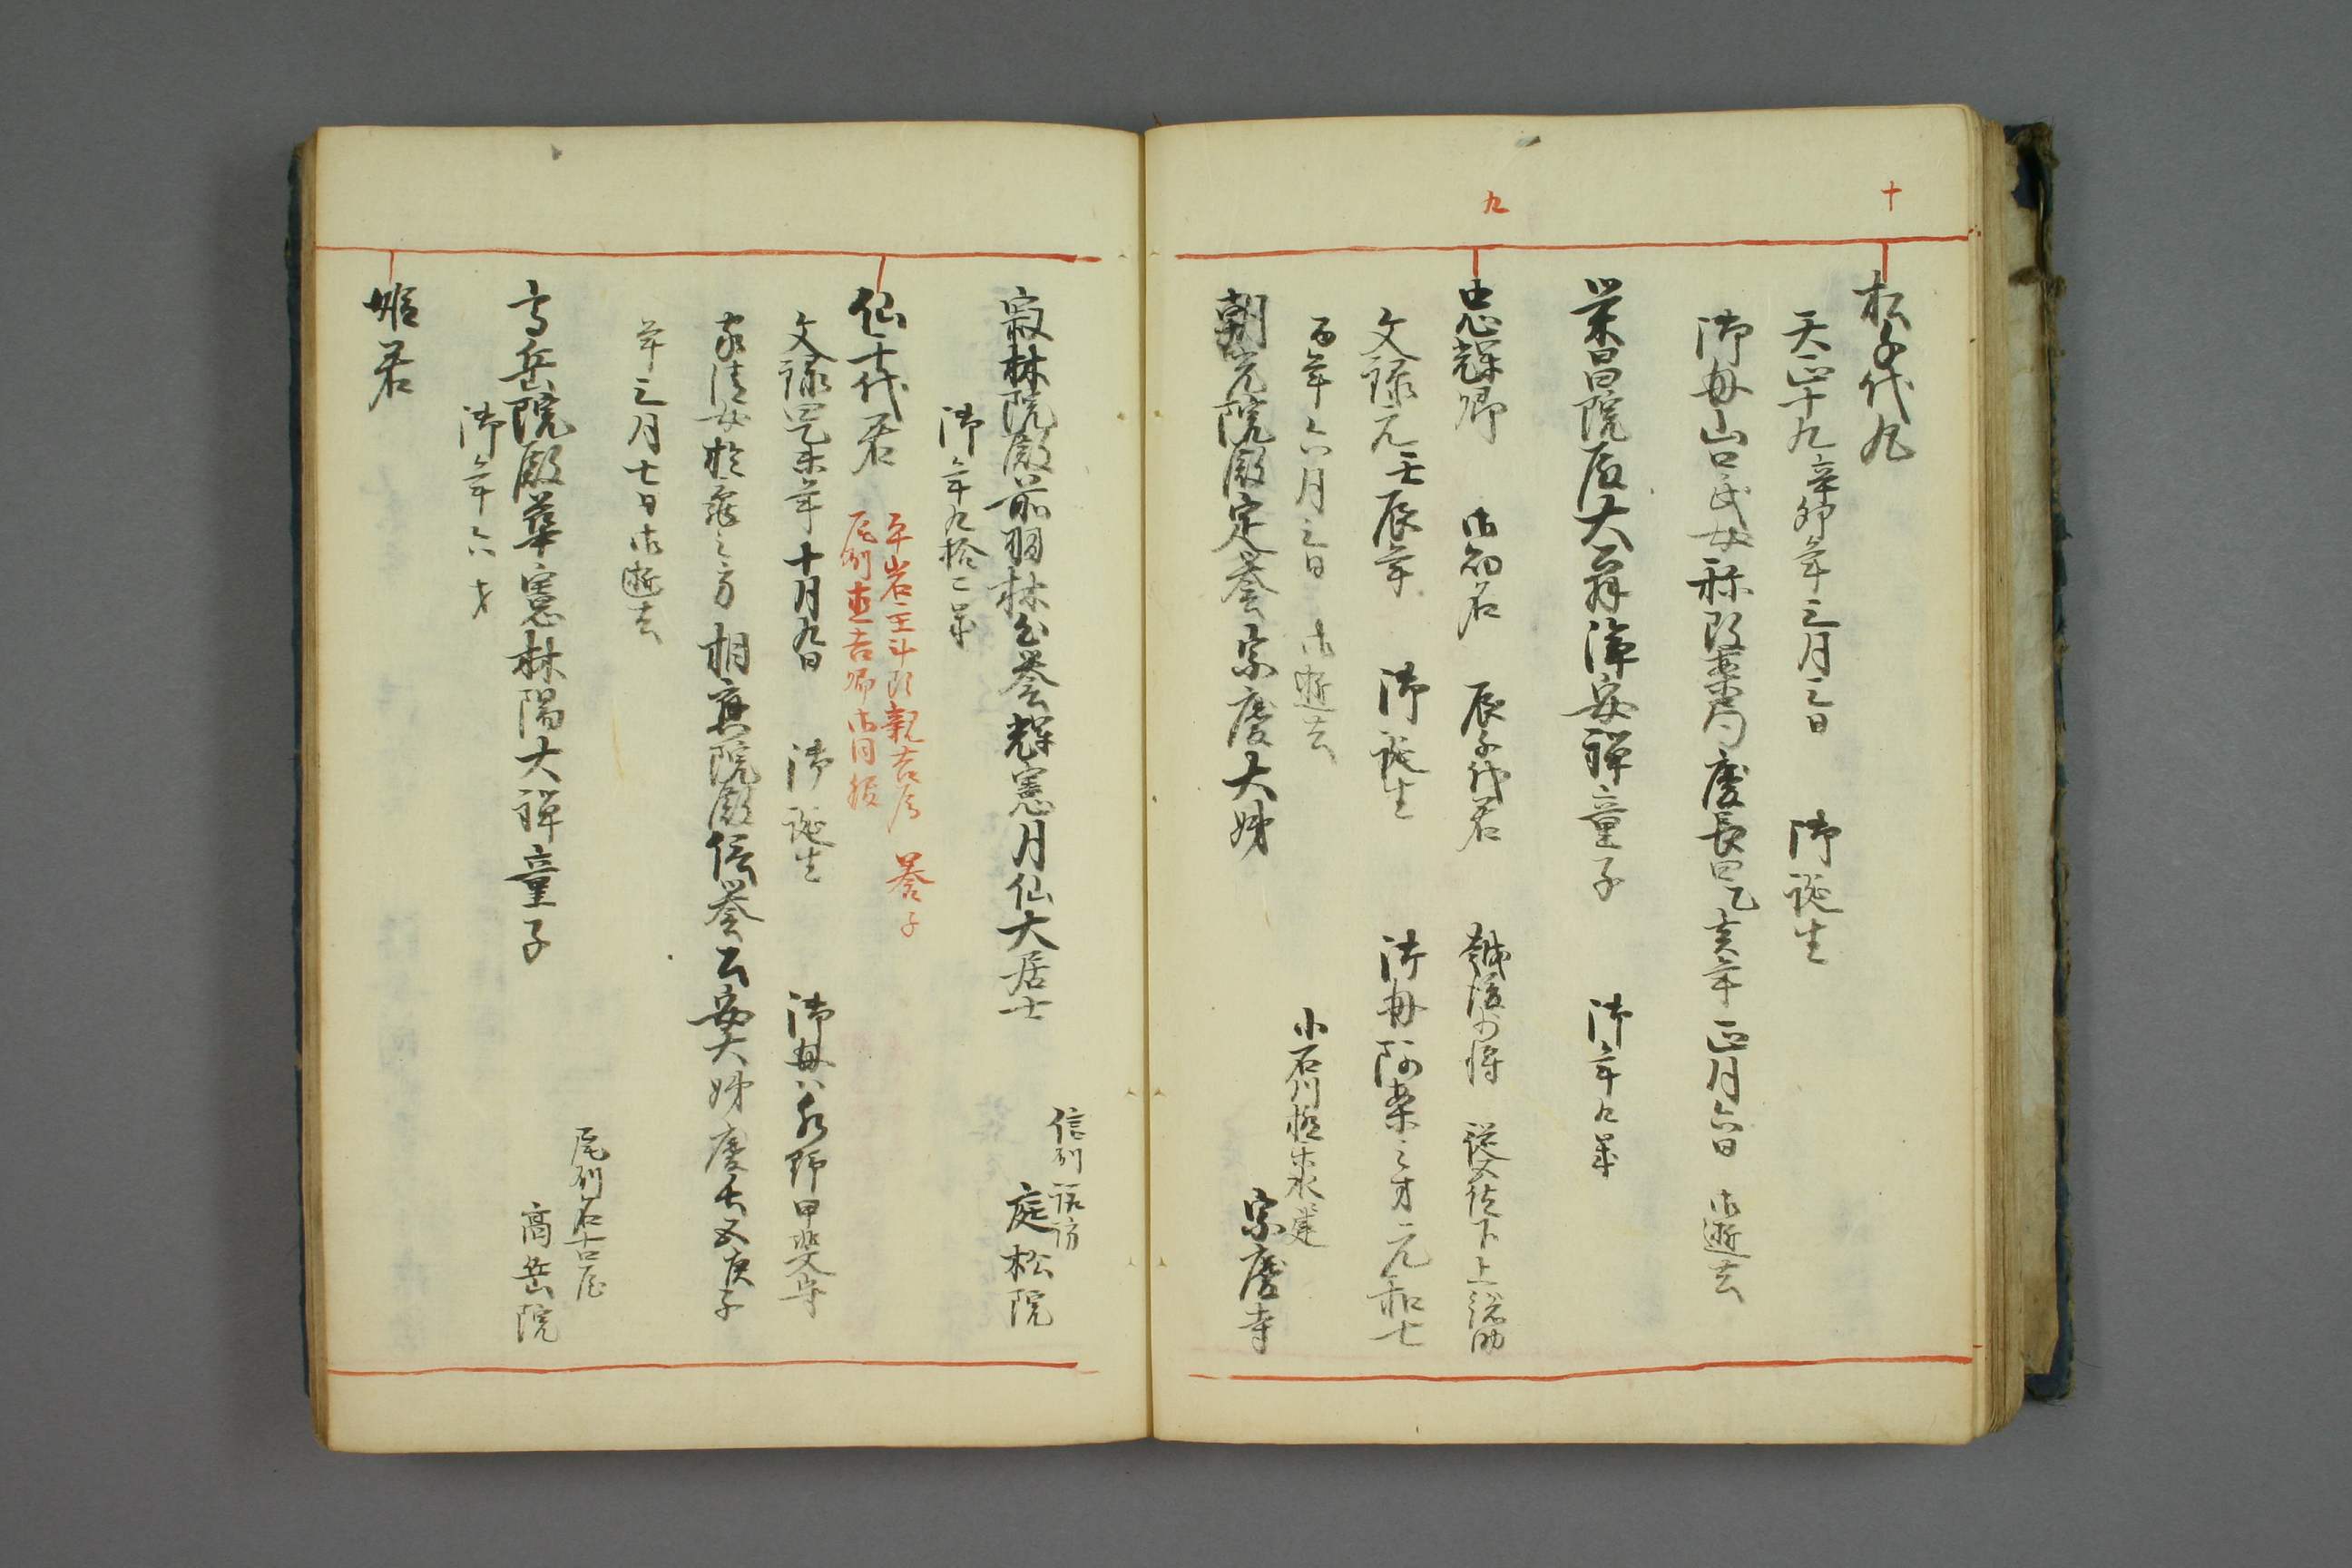 十
松千代丸
天正十九辛卯年三月三日 御誕生
御母山口氏女称阿茶局慶長四乙亥年正月六日 御逝去
栄昌院殿大翁浄安禅童子 御年九歳
九
忠輝卿 御初名 辰千代君 越後少将 従四位下上総助
文禄元壬辰年 御誕生 御母阿茶之方元和七
酉年六月三日 御逝去
小石川極楽水
朝光院殿定誉宗慶大姉 宗慶寺
信州諏訪
寂林院殿前羽林公誉輝窓月仙大居士 庭松院
御年九拾二歳
仙千代君 平岩主計頭親吉君 養子
尾州直吉卿御同腹
文禄四乙未年十月九日 御誕生 御母ハ水野甲斐守
家清女於亀之方 相応院殿信誉公安大姉 慶長五庚子
年三月七日御逝去
尾州名古屋
高岳院殿華窓林陽大禅童子 高岳院
御年六才
姫君